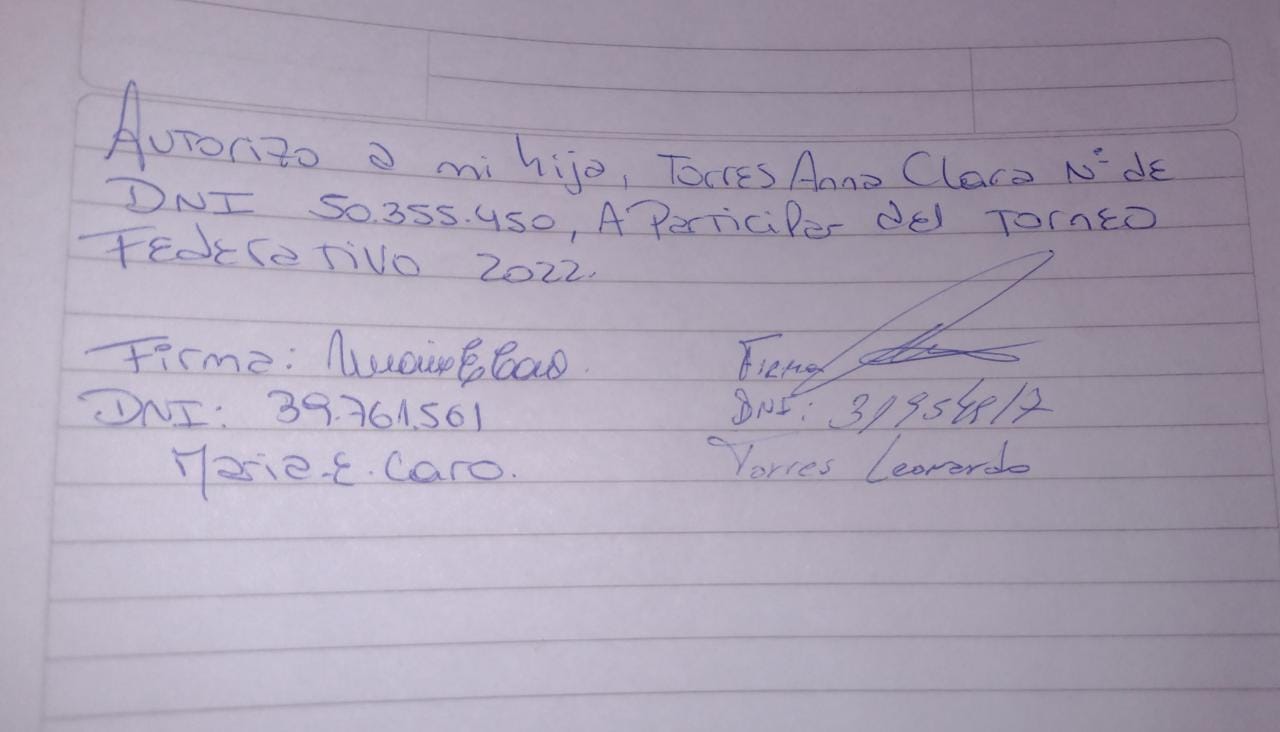 Autorizo a mi hija, Torres Anna Clara N° de
DNI 50.355.450, A Participar del Torneo
Federativo 2022.
Firma:
DNI: 39.761.561
Maria.E.Caro.
Firma
DNI: 31954817
Torres Leonardo